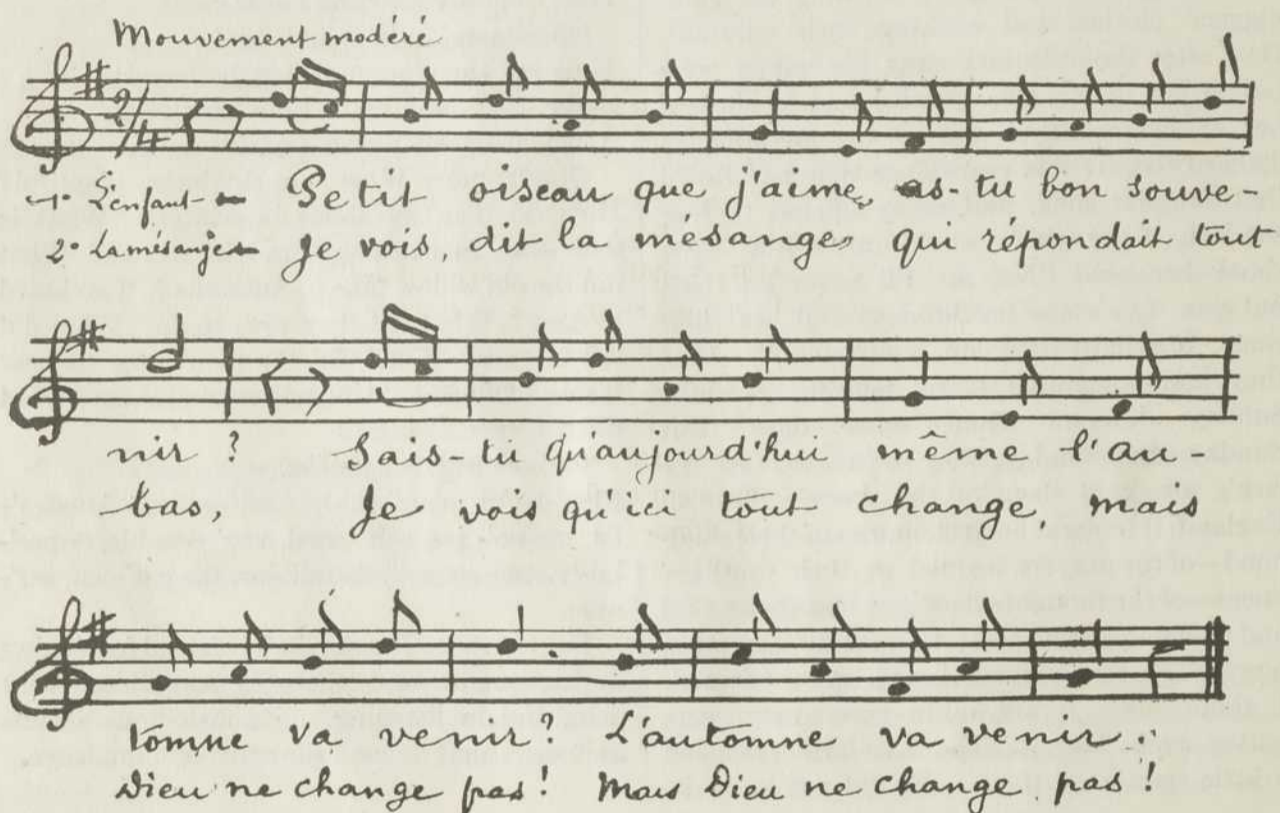 Mouvement modéré
2/4
1º L'enfant - Petit oiseau que j'aime, as-tu bon souve-
2º La mésange - Je vois, dit la mésange, qui répondait tout
nir ? Sais-tu qu'aujourd'hui même l'au-
bas, Je vois qu'ici tout change, mais
tomne va venir ? L'automne va venir ;
Dieu ne change pas ! Mais Dieu ne change pas !